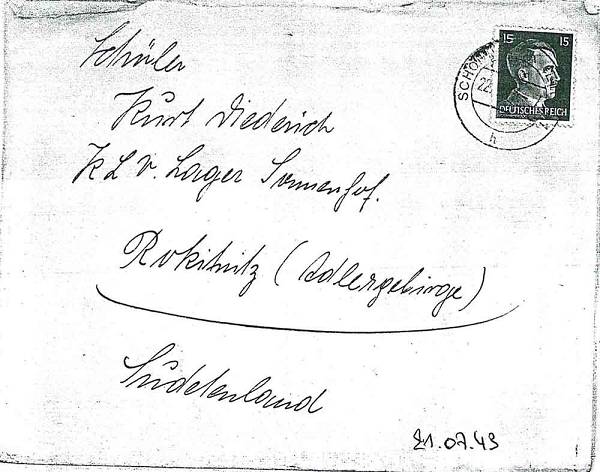 15 15
DEUTSCHES REICH
SCHÖN
22.
h
Schüler
Kurt Diederich
KLV. Lager Sonnenhof.
Rokitnitz (Adlergebirge)
Sudetenland
21.07.43